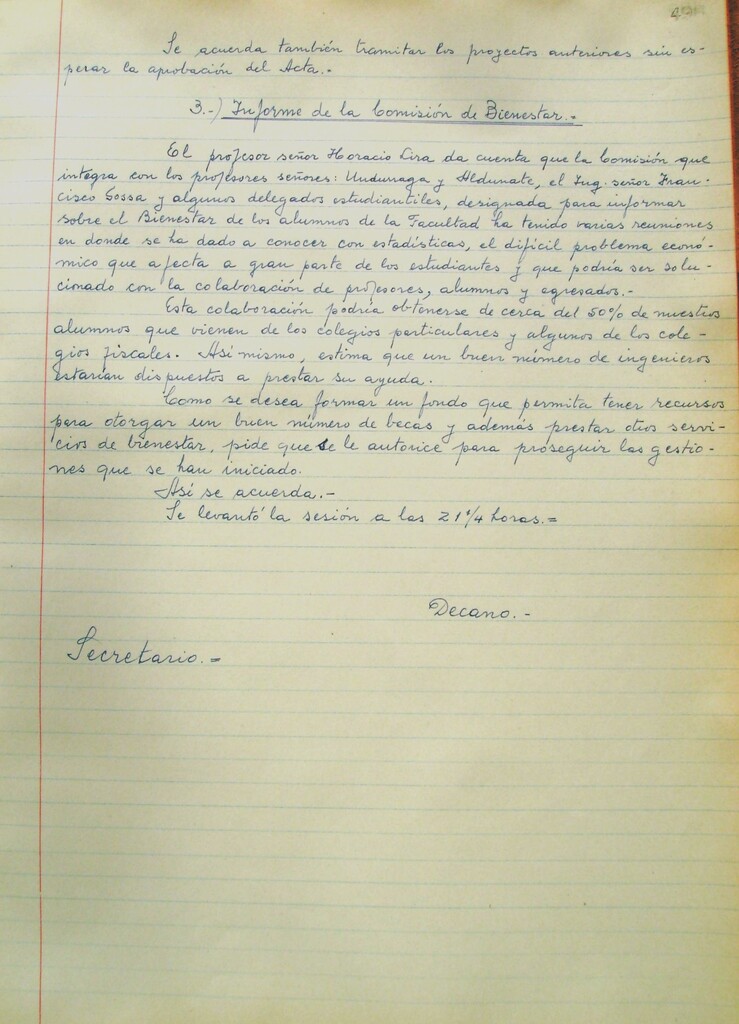 Se acuerda también tramitar los proyectos anteriores sin es-
perar la aprobación del Acta.-
3.-) Informe de la Comisión de Bienestar.-
El profesor señor Horacio Lira da cuenta que la Comisión que
integra con los profesores señores: Undurraga y Aldunate, el Ing. señor Fran-
cisco Gossa y algunos delegados estudiantiles, designada para informar
sobre el Bienestar de los alumnos de la Facultad ha tenido varias reuniones
en donde se ha dado a conocer con estadísticas, el difícil problema econó-
mico que afecta a gran parte de los estudiantes y que podría ser solu-
cionado con la colaboración de profesores, alumnos y egresados.-
Esta colaboración podría obtenerse de cerca del 50% de nuestros
alumnos que vienen de los colegios particulares y algunos de los cole-
gios fiscales. Así mismo, estima que un buen número de ingenieros
estarían dispuestos a prestar su ayuda.
Como se desea formar un fondo que permita tener recursos
para otorgar un buen número de becas y además prestar otros servi-
cios de bienestar, pide que se le autorice para proseguir las gestio-
nes que se han iniciado.
Así se acuerda.-
Se levantó la sesión a las 21 1/4 horas.=
Decano.-
Secretario.=